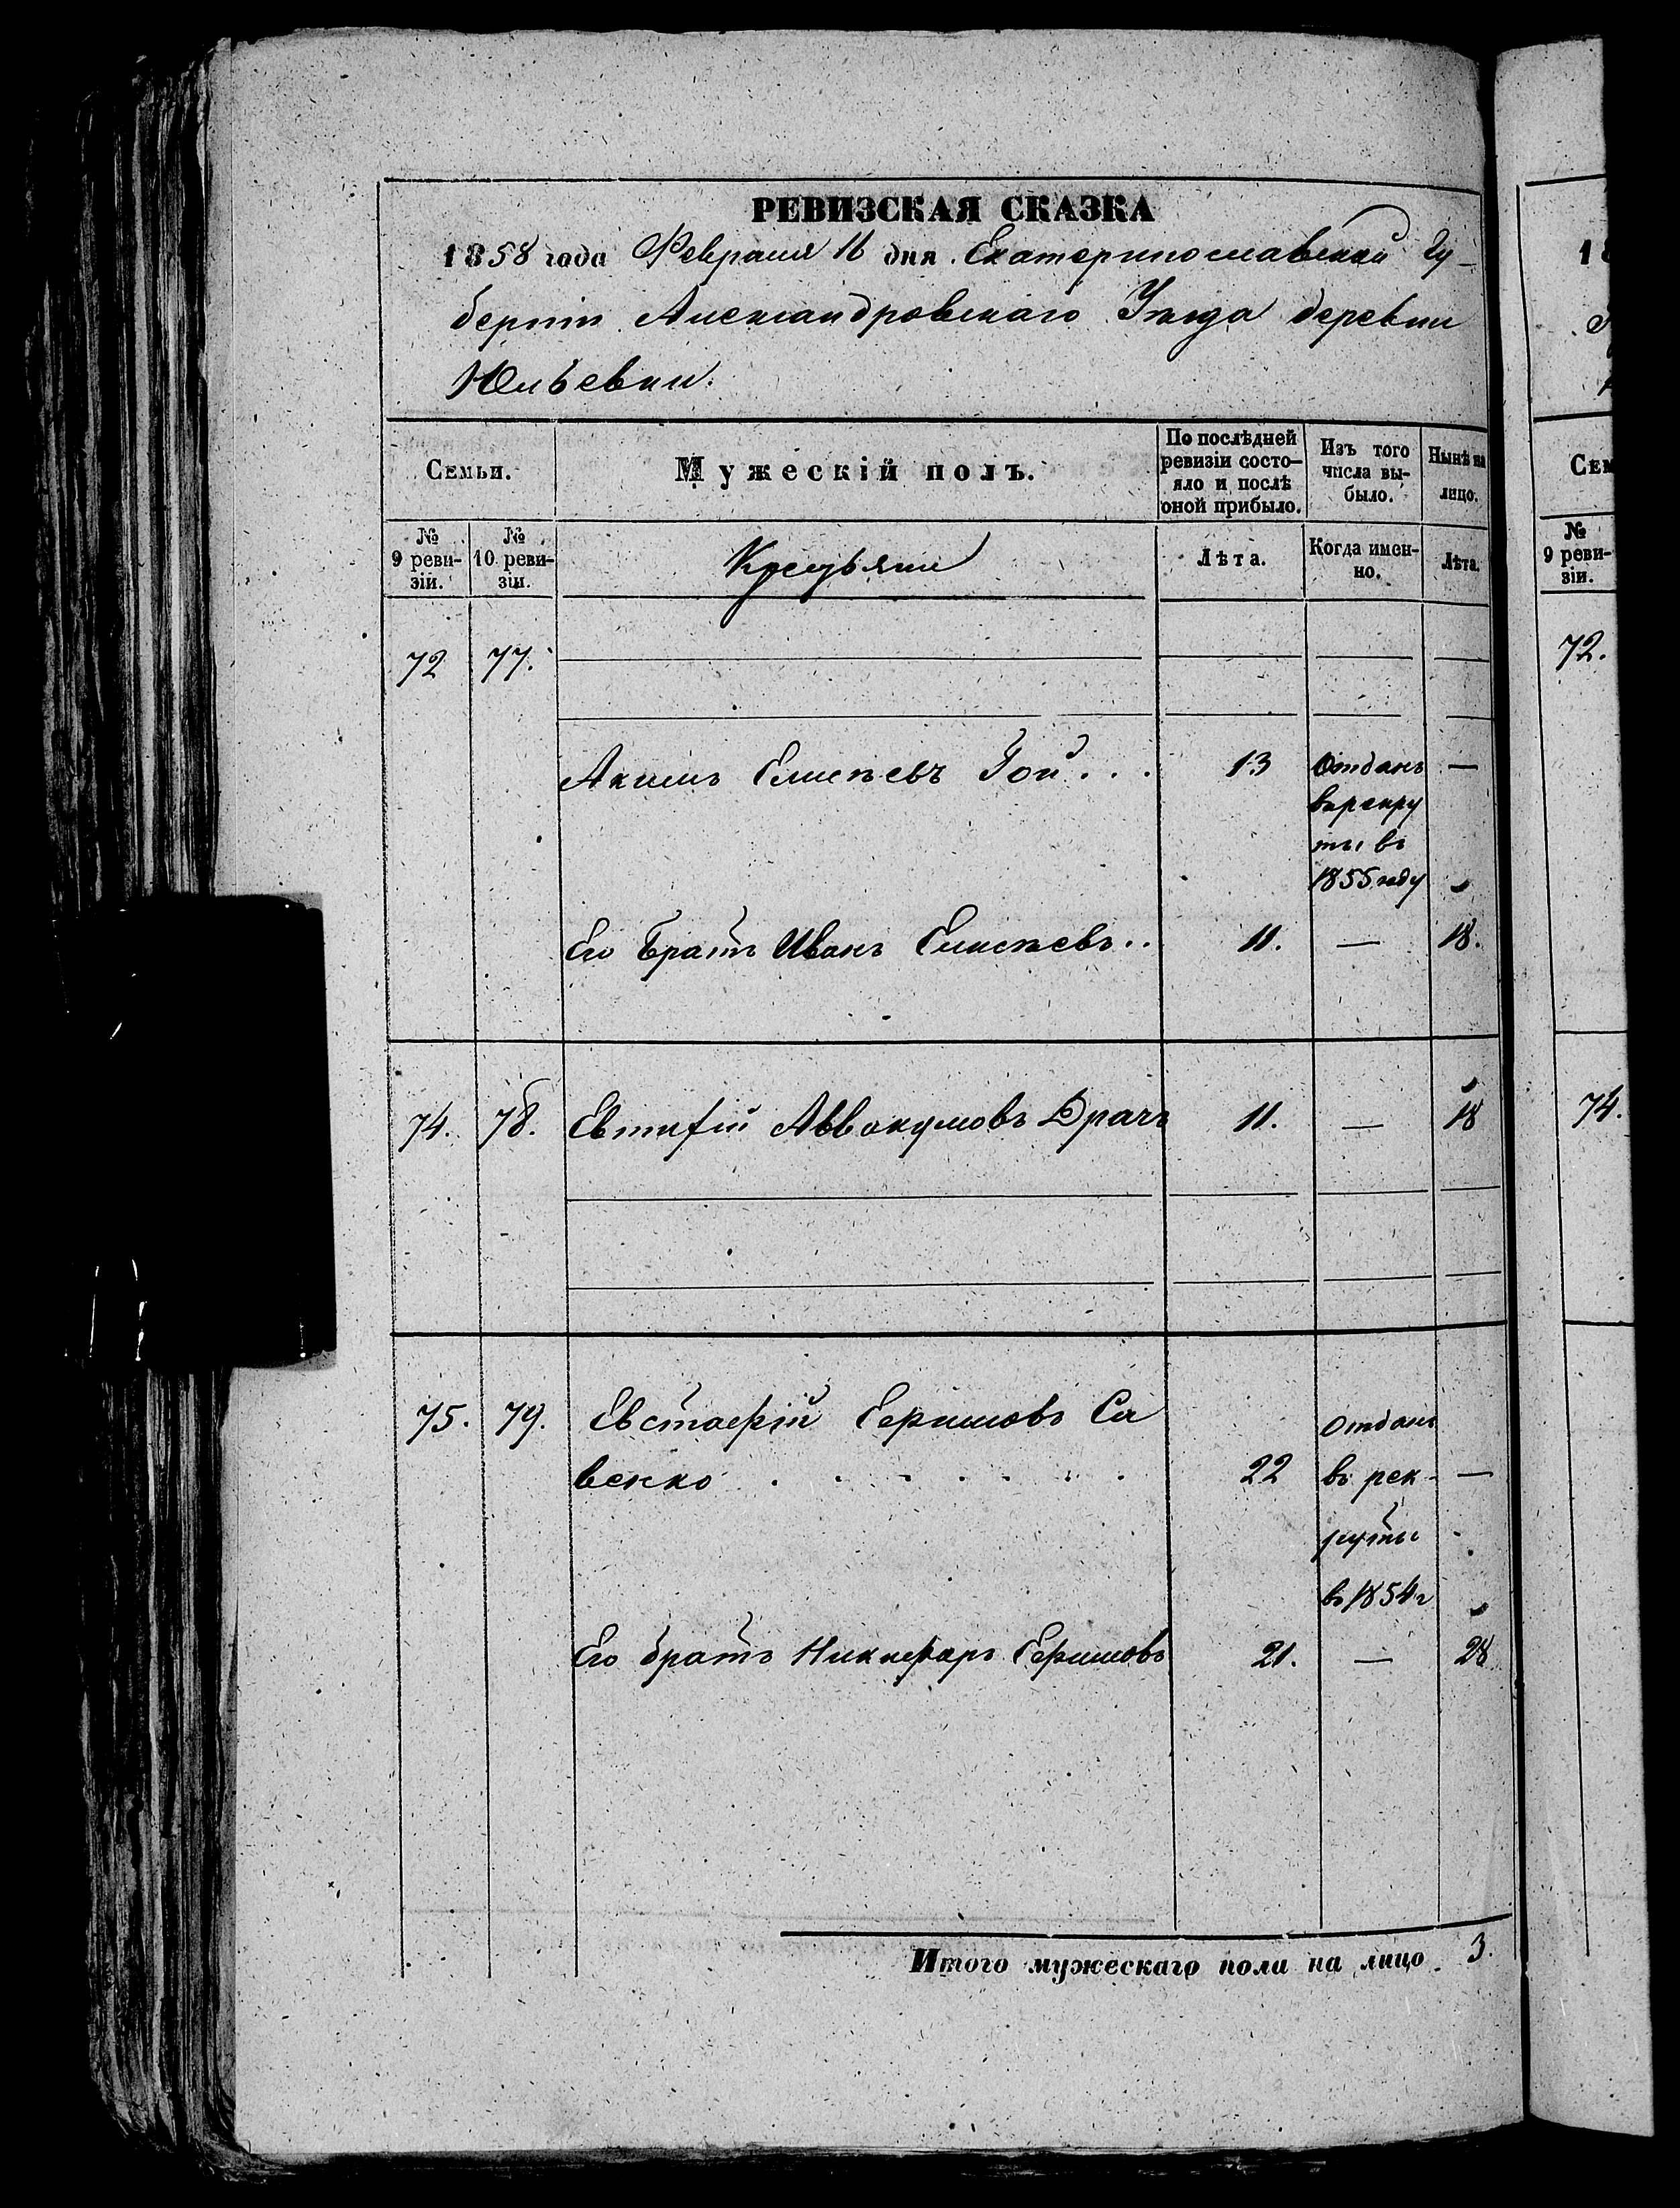 РЕВИЗСКАЯ СКАЗКА
1858 года Февраля 16 дня. Екатеринославской Гу-
берніи Александровскаго Уѣзда деревни
Юльевки.
Семьи.
Мужескій полъ.
По послѣдней
ревизіи состо-
яло и послѣ
оной прибыло.
Изъ того
числа вы-
было.
Нынѣ на
лицо.
№
9 реви-
зіи.
№
10 реви-
зіи.
Крестьяне
Лѣта.
Когда имен-
но.
Лѣта.
72 77.
Акимъ Елисѣевъ Гой . . . 13 Отданъ —
въ рекру
ты въ
1855 году
Его Братъ Иванъ Елисѣевъ.. 11. — 18.
74. 78. Евтифій Аввакумовъ Драчъ 11. — 18
75. 79. Евстафій Ефимовъ Са Отданъ
венко . . . . . . . 22 въ рек- —
руты
въ 1854 г
Его братъ Никифоръ Ефимовъ 21. — 28
Итого мужескаго пола на лицо 3.
18
Сем
№
9 реви-
зіи.
72.
74.